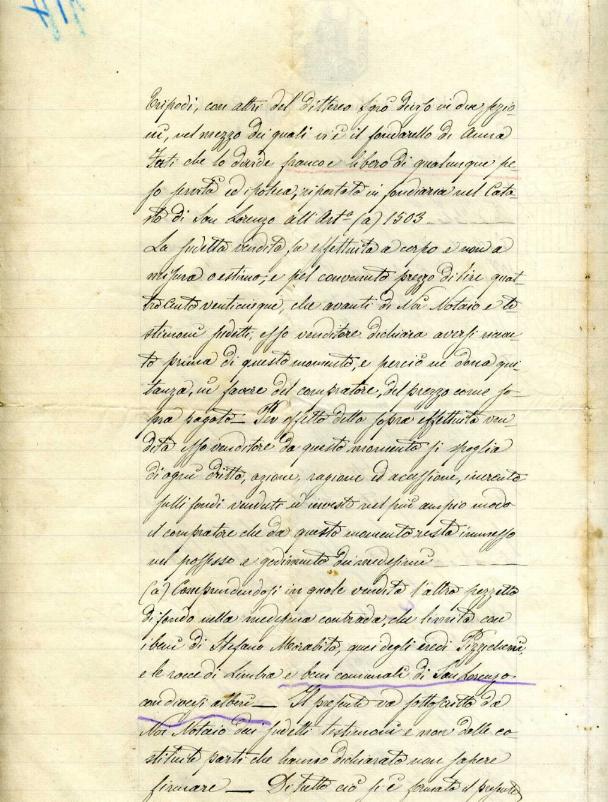 Tripodi, con altri del Sitteneo Sarò diviso in due pezio
ni, nel mezzo dei quali vi è il fondarello di Anna
che lo divide, franco e libero di qualunque pe
so servitù ed ipoteca, riportato in fondiaria nel Cata
sto di San Lorenzo all'Art.º (a) 1503
La sudetta vendita fa effettuita a corpo e non a
misura o estimo, e pel convenuto prezzo di lire quat
trocento venticinque, che avanti di Noi Notaio e te
stimoni sudetti, esso venditore dichiara aversi ricevu
to prima di questo momento, e perciò ne dona qui
tanza, in favore del compratore, del prezzo come so
pra pagato — Per effetto della sopra effettuita ven
dita esso venditore da questo momento si spoglia
di ogni dritto, azione, ragione ed accessione, inerente
sulli fondi venduti e ne investe nel più ampio modo
il compratore che da questo momento resta immesso
nel possesso e godimento dei medesimi
(a) Comprendendosi in quale vendita l'altro pezzetto
di fondo nella medesima contrada, che limita con
i beni di Stefano Mirabito, quei degli eredi
e le rocce di e beni comunali di San Lorenzo
con diversi alberi — Il presente va sottoscritto da
Noi Notaio dai sudetti testimoni e non dalle co
stituite parti che hanno dichiarato non sapere
firmare — Di tutto ciò si è formato il presente